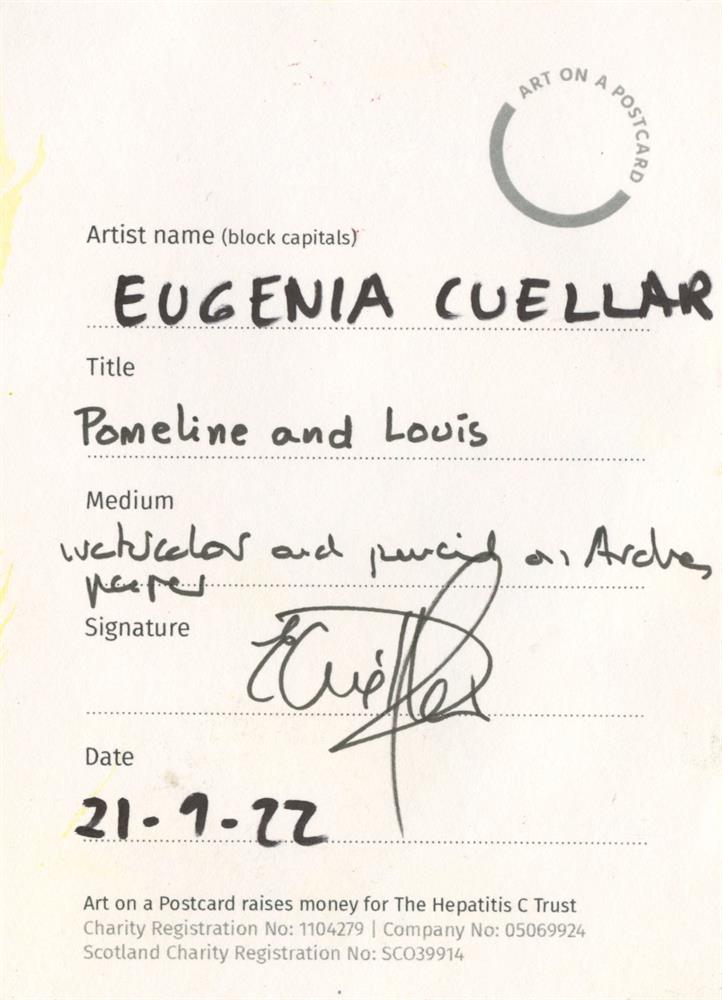 ART ON A POSTCARD
Artist name (block capitals)
EUGENIA CUELLAR
Title
Pomeline and Louis
Medium
watercolor and pencil on Arches
paper
Signature
ECuéllar
Date
21-9-22
Art on a Postcard raises money for The Hepatitis C Trust
Charity Registration No: 1104279 | Company No: 05069924
Scotland Charity Registration No: SCO39914